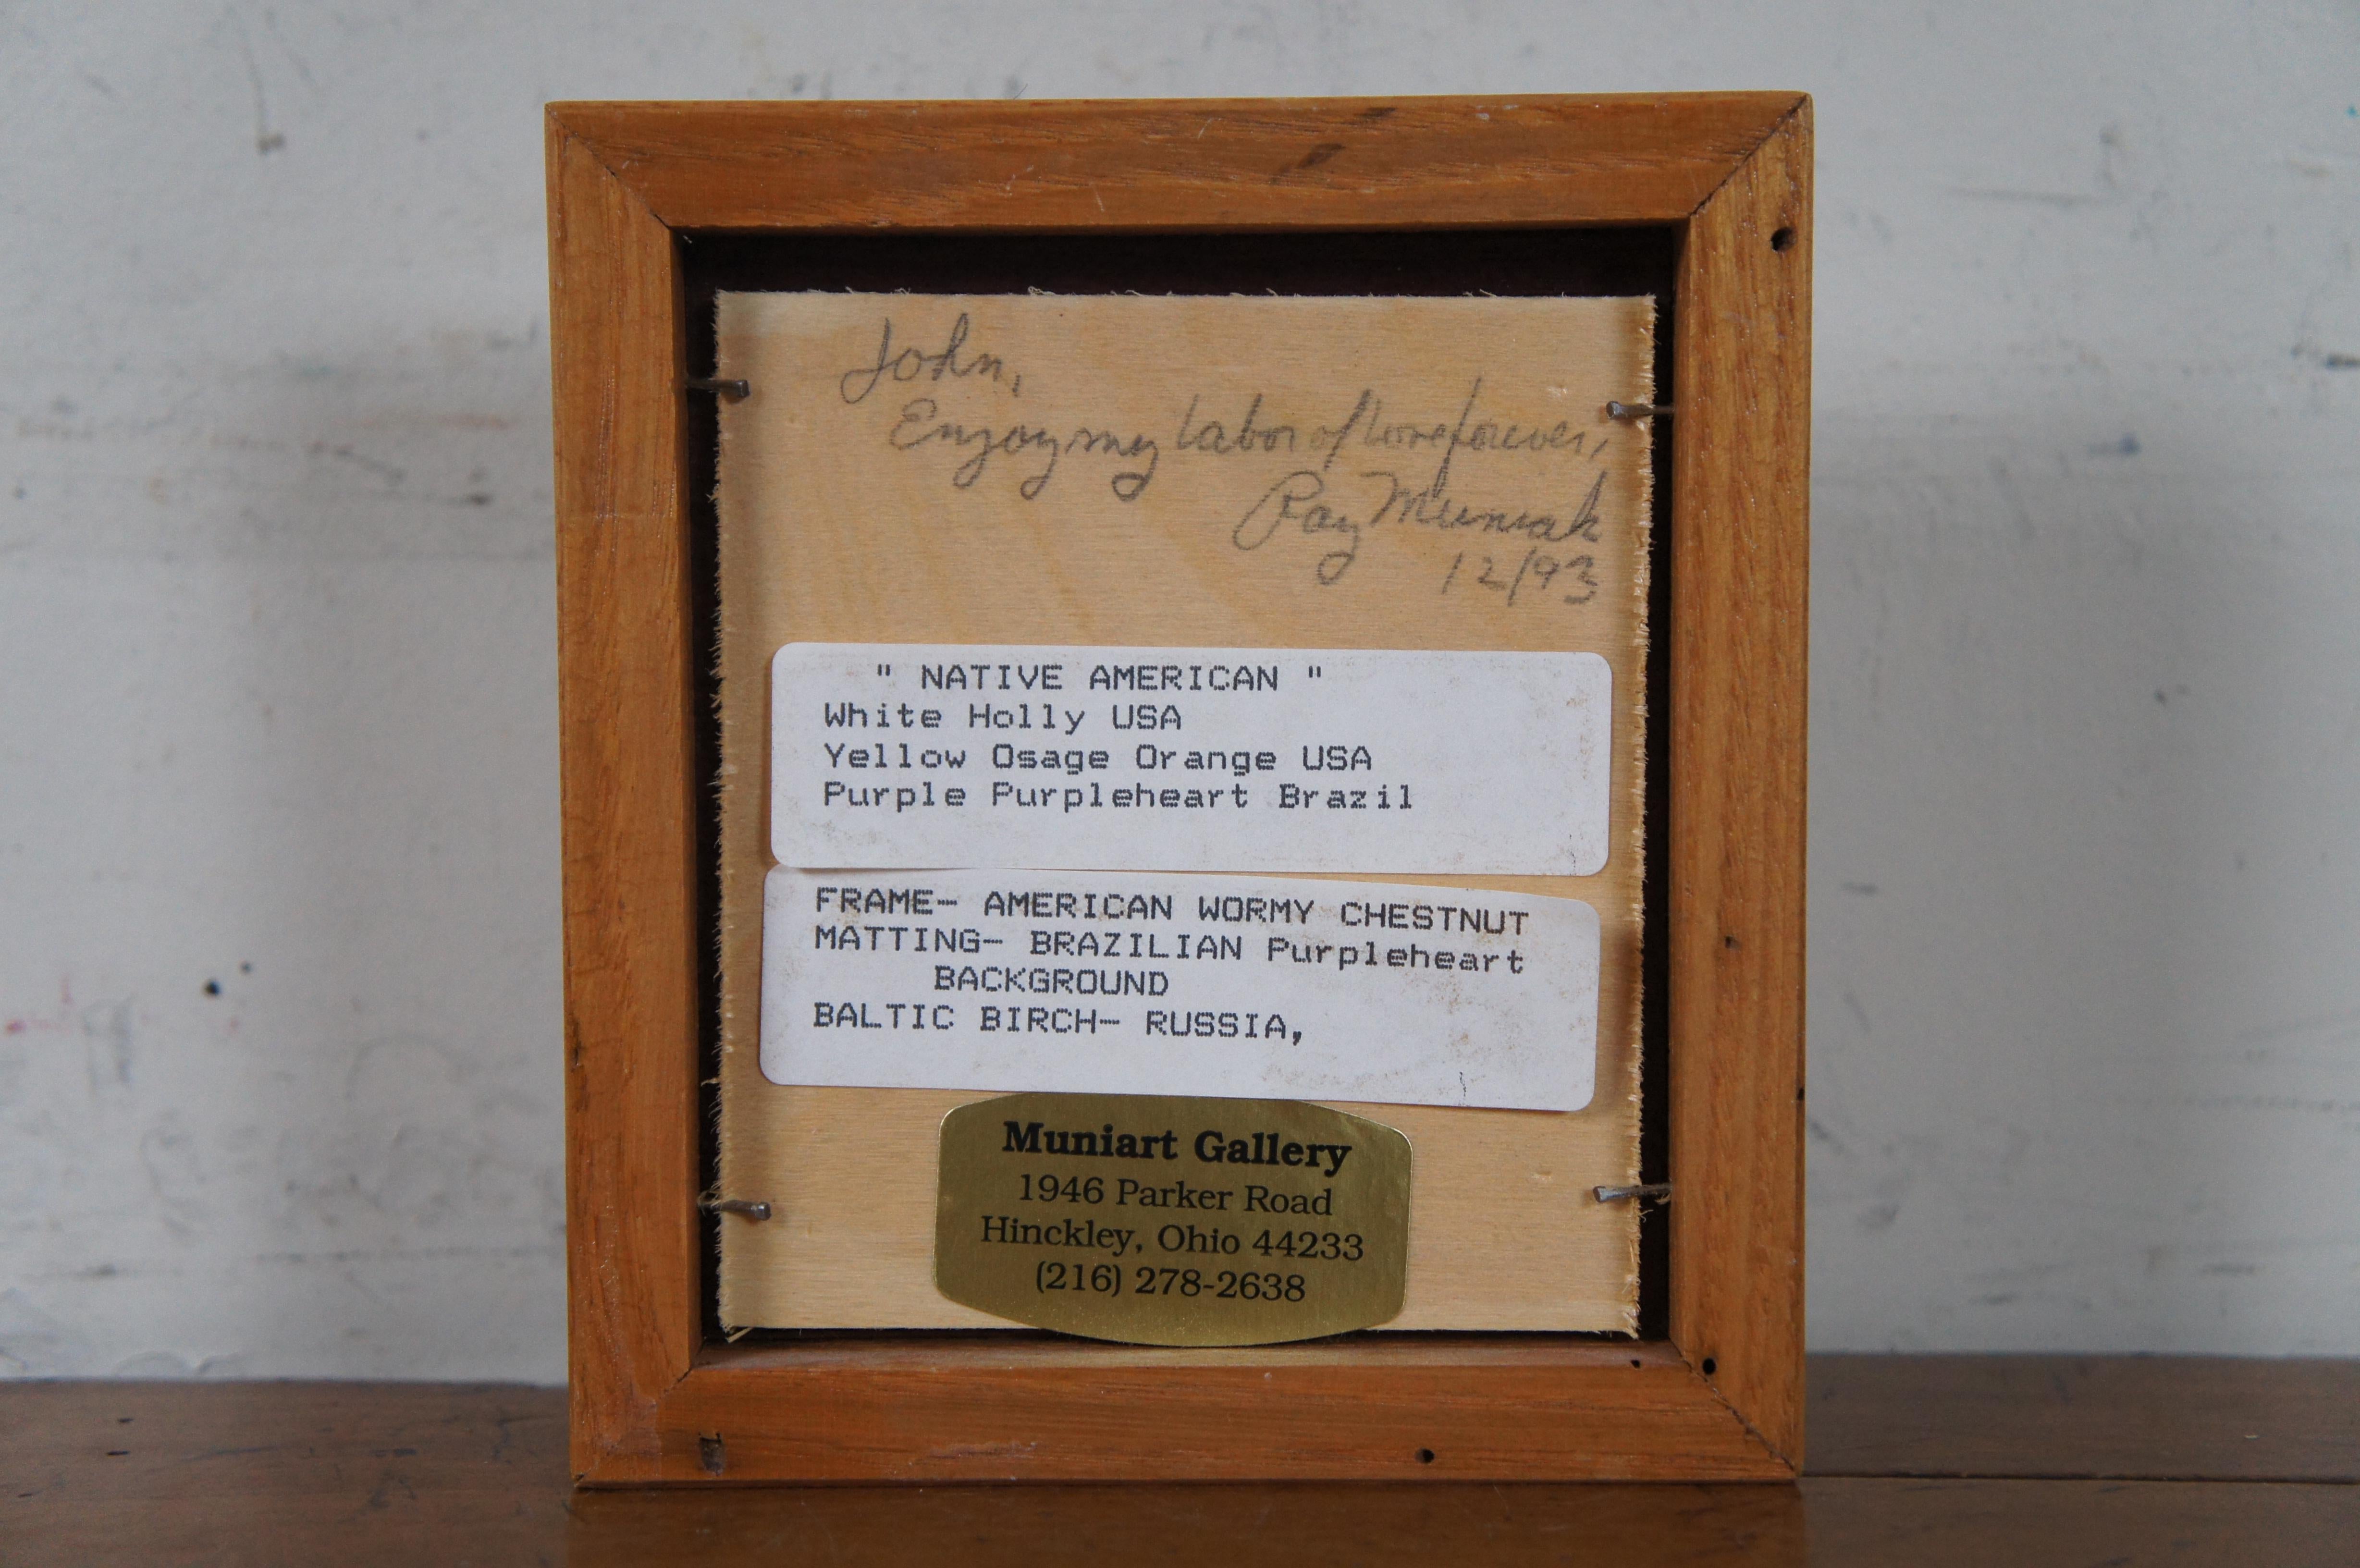 John,
Enjoy my labor of love forever,
Ray Muniak
12/93
" NATIVE AMERICAN "
White Holly USA
Yellow Osage Orange USA
Purple Purpleheart Brazil
FRAME- AMERICAN WORMY CHESTNUT
MATTING- BRAZILIAN Purpleheart
BACKGROUND
BALTIC BIRCH- RUSSIA,
Muniart Gallery
1946 Parker Road
Hinckley, Ohio 44233
(216) 278-2638